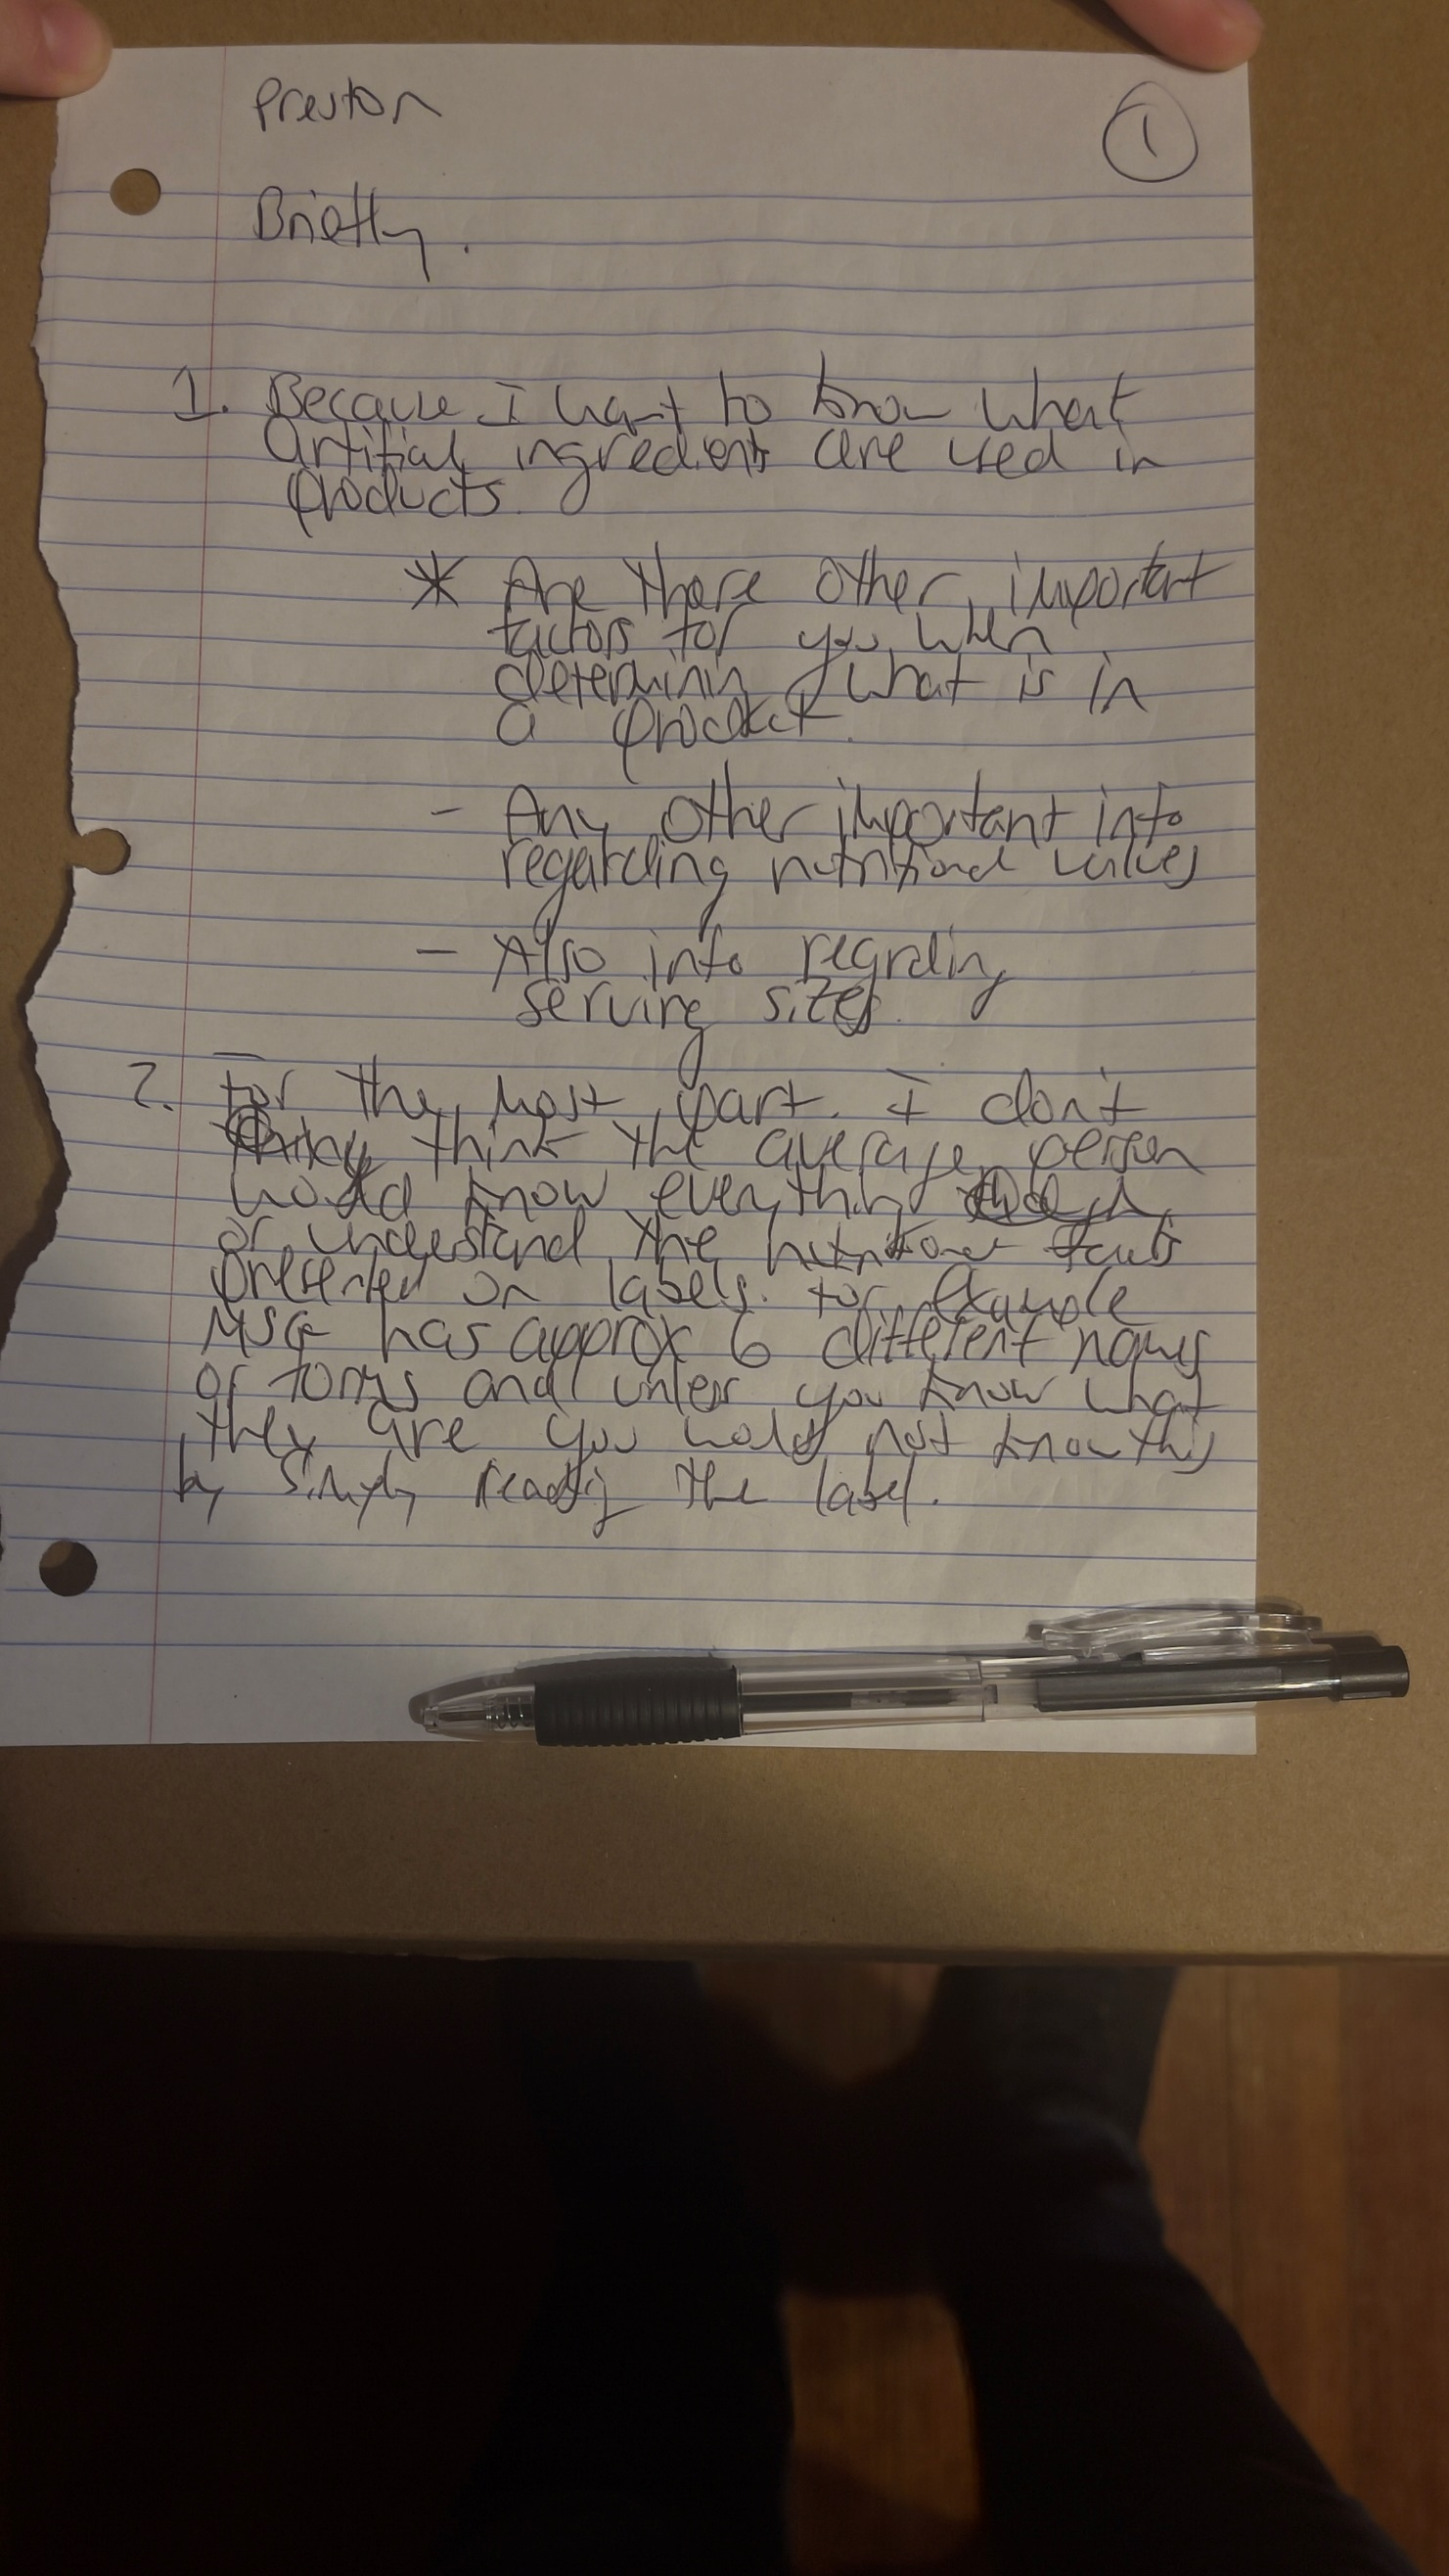 Preston
1
Briefly.
1. Because I want to know what
artifial ingredients are used in
products.
* Are there other important
factors for you when
determining what is in
a product.
- Any other important info
regarding nutritional values
- Also info regrding
serving sizes.
2. For the most part. I don't
think the average person
would know everything
or understand the nutritional facts
presented on labels. for example
MSG has approx 6 different names
or forms and unless you know what
they are you would not know this
by simply reading the label.